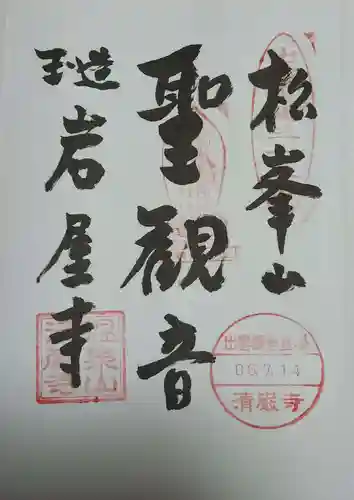 松峯山
聖観音
玉造
岩屋寺
06.7.14
清巌寺